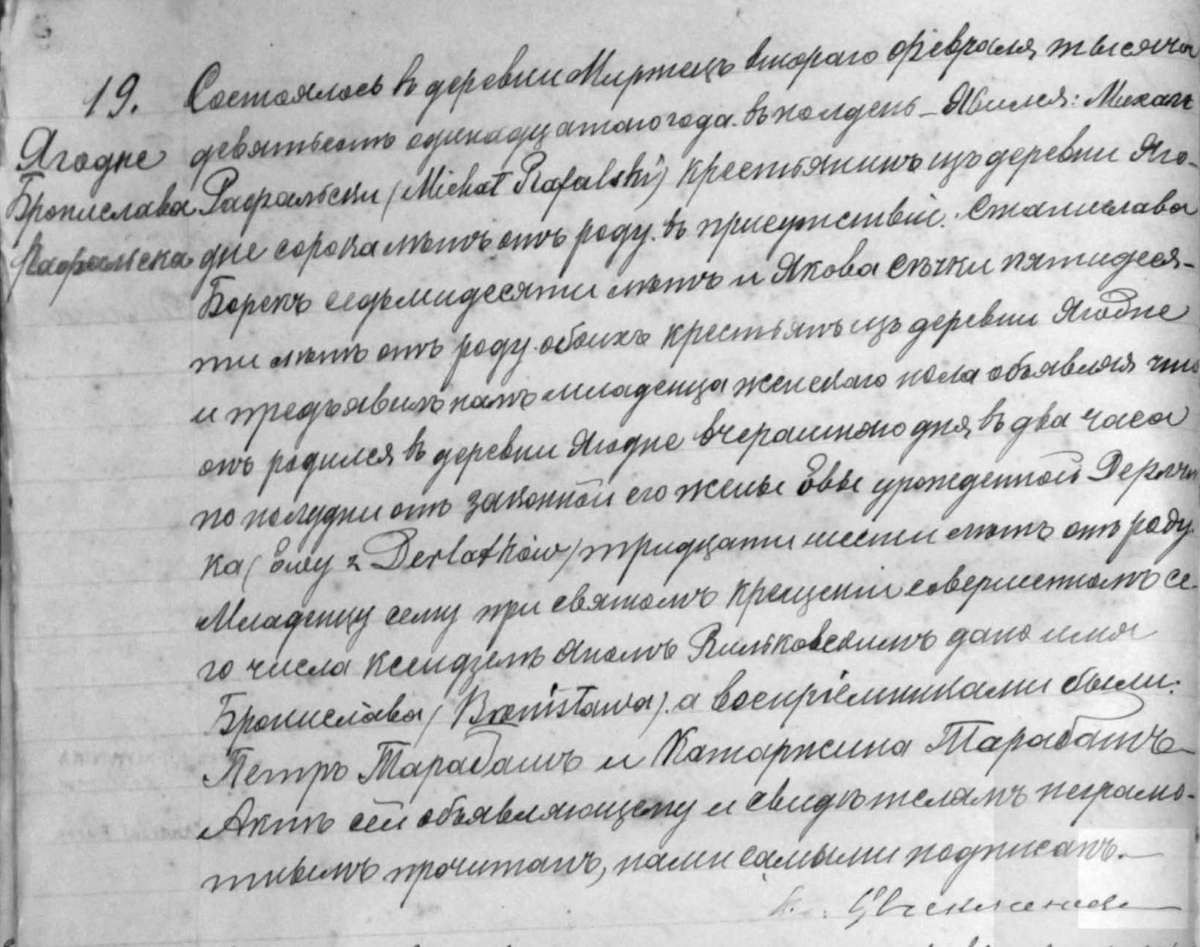 19. Состоялось въ деревни Миржецъ втораго февраля тысяча
Ягодне девятьсотъ одинадцатаго года въ полдень – Явился: Михалъ
Бронислава Рафальски (Michał Rafalski) крестьянинъ изъ деревни Яго-
Рафальска дне сорока лѣтъ отъ роду въ присутствіи Станислава
Борекъ седьмидесяти лѣтъ и Якова Сѣчки пятидеся-
ти лѣтъ отъ роду обоихъ крестьянъ изъ деревни Ягодне
и предъявилъ намъ младенца женскаго пола объявляя что
онъ родился въ деревни Ягодне вчерашняго дня въ два часа
по полудни отъ законной его жены Евы урожденной
ка (Ewy z Derlatków) тридцати шести лѣтъ отъ роду.
Младенцу сему при святомъ крещеніи совершенномъ се-
го числа ксендземъ Яномъ Вильковскимъ дано имя
Бронислава (Bronisława). а воспріемниками были:
Петръ Тарабашъ и Катаржина Тарабашъ
Актъ сей объявляющему и свидѣтелямъ неграмо-
тнымъ прочитанъ, нами самыми подписанъ.